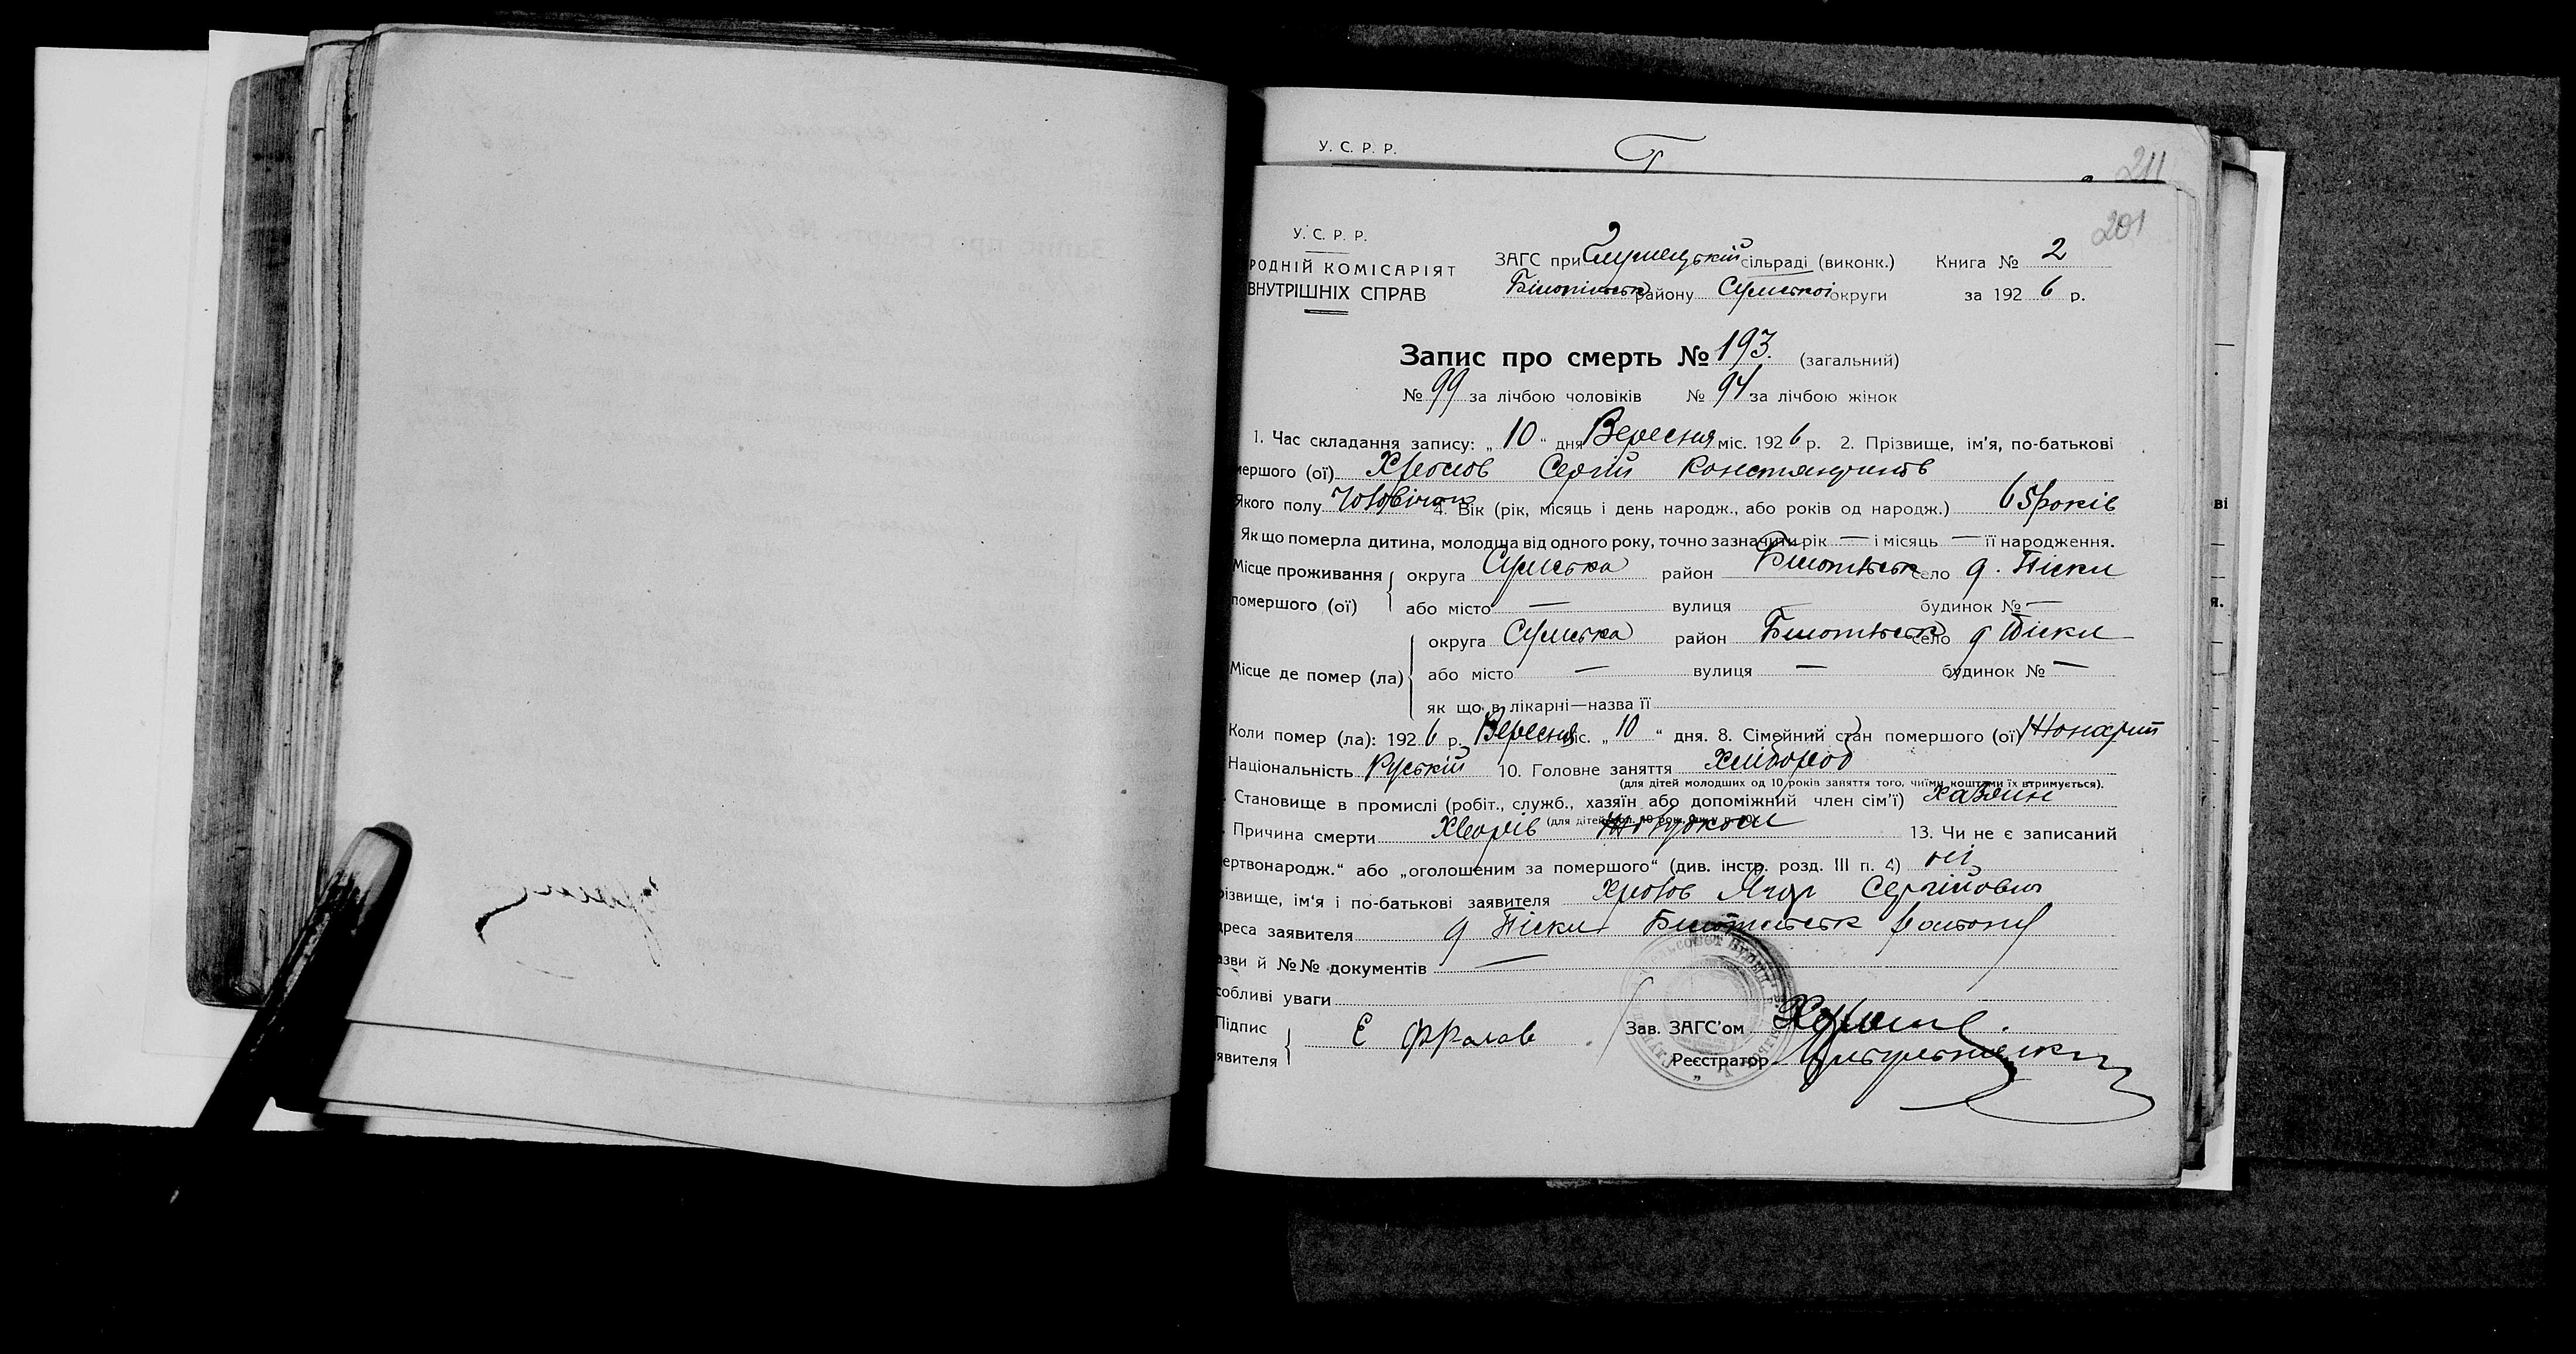 У. С. Р. Р.
211
201
У. С. Р. Р.
РОДНІЙ КОМІСАРІЯТ
ВНУТРІШНІХ СПРАВ
ЗАГС при сільраді (виконк.) Книга № 2
Білопільськ району Сумської округи за 1926 р.
Запис про смерть № 193. (загальний)
№ 99 за лічбою чоловіків № 94 за лічбою жінок
1. Час складання запису: „ 10 " дня Вересня міс. 1926 р. 2. Прізвище, ім'я, по-батькові
мершого (ої) Сергій Константинов
Якого полу 4. Вік (рік, місяць і день народж., або років од народж.) 65 років
Як що померла дитина, молодша від одного року, точно зазначити рік — і місяць — її народження.
Місце проживання округа Сумська район Білопільськ село д. Піски
помершого (ої) або місто — вулиця будинок № —
округа Сумська район Білопільськ село д Піски
Місце де помер (ла) або місто — вулиця — будинок № —
як що в лікарні—назва її
Коли помер (ла): 1926 р. Вересня міс. „ 10 " дня. 8. Сімейний стан помершого (ої) Жонатий
Національність Руській 10. Головне заняття Хлібороб
(для дітей молодших од 10 років заняття того, чиїми коштами їх втримується).
Становище в промислі (робіт., служб., хазяїн або допоміжний член сім'ї) Хазяин
Причина смерти 13. Чи не є записаний
ертвонародж." або „оголошеним за помершого" (див. інстр. розд. III п. 4) ні
різвище, ім'я і по-батькові заявителя Сергійович
дреса заявителя д Піски Білопільськ району
азви й №№ документів —
собливі уваги
Підпис
явителя Е Фралов
Зав. ЗАГС'ом
Реєстратор
ві
я.